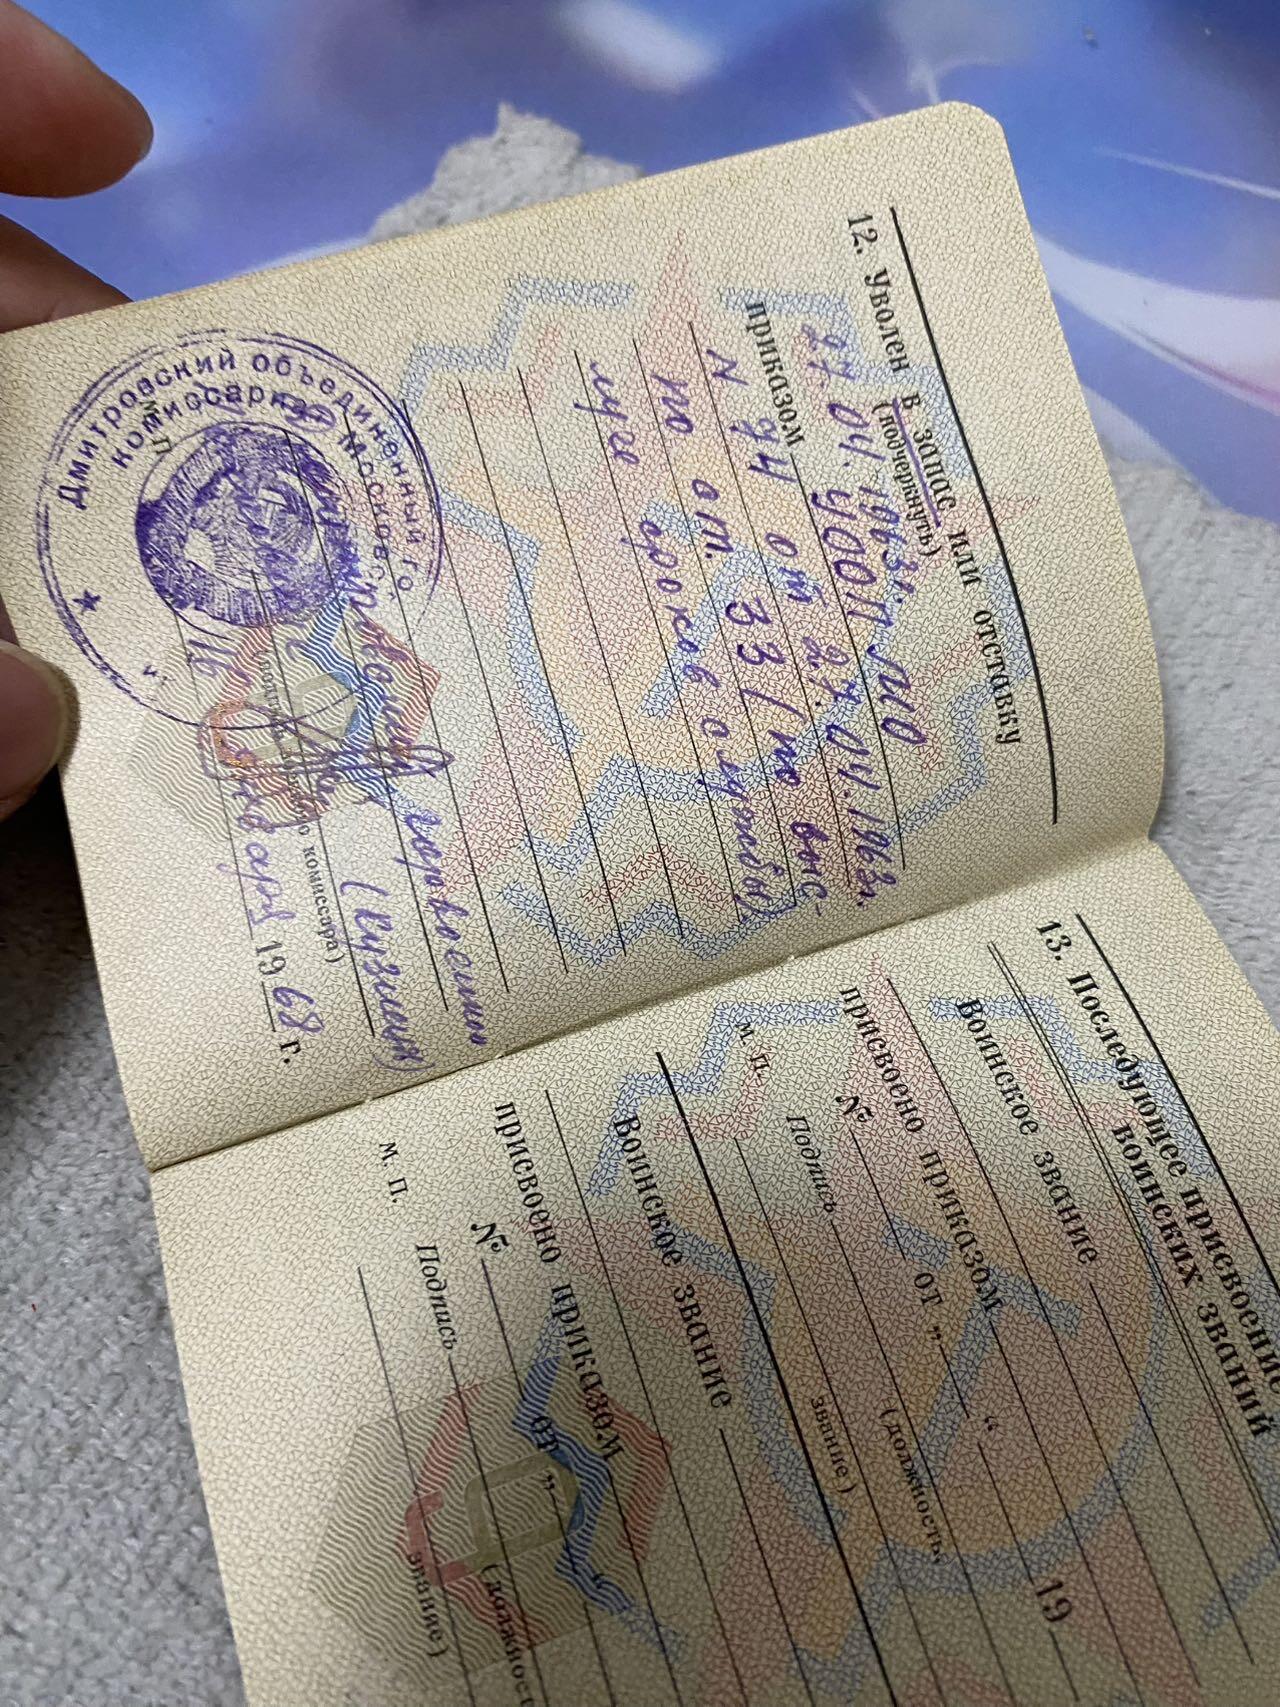 12. Уволен в запас или отставку
(подчеркнуть)
27.04.1963г. УООП МО
приказом
N 94 от 27.04.1963г.
по ст. 33 (по выс-
луге сроков службы)
горвоенком
(Кузнецов)
комиссара)
16 января 1968 г.
М. П.
Дмитровский объединенный
комиссариат Московс
13. Последующее присвоение
воинских званий
Воинское звание
присвоено приказом
№ от „ “ 19
м. п.
Подпись
(должность,
звание)
Воинское звание
присвоено приказом
№ от „ “
м. п.
Подпись
(должность
звание)